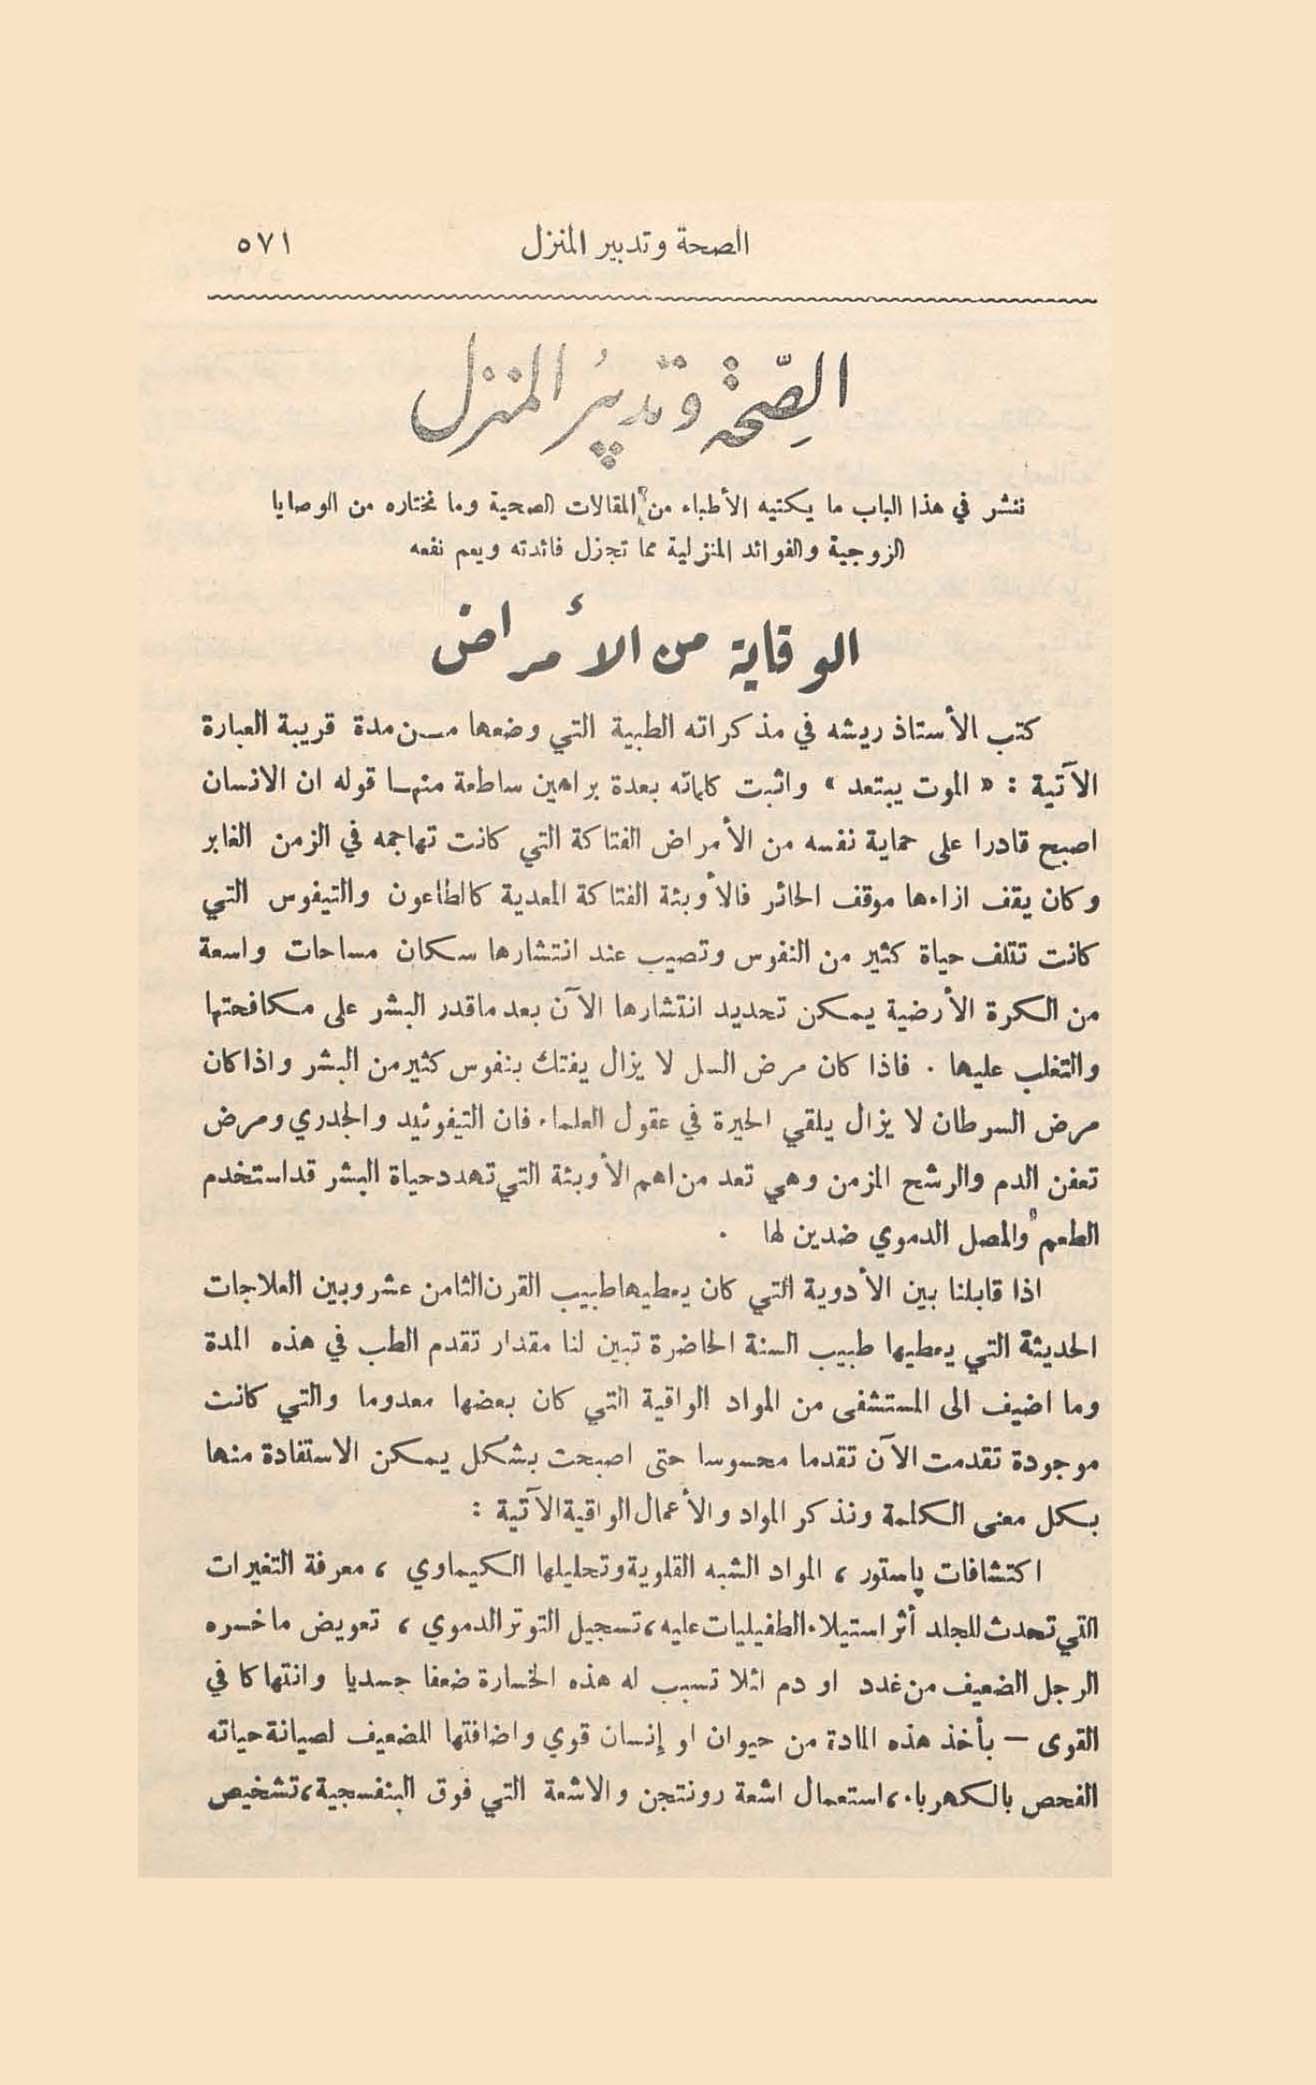 الصحة وتدبير المنزل ٥٧١
الصِّحة وتدبيرُ المنزل
ننشر في هذا الباب ما يكتبه الأطباء من المقالات الصحية وما نختاره من الوصايا
الزوجية والفوائد المنزلية مما تجزل فائدته ويعم نفعه
الوقاية من الأمراض
كتب الأستاذ ريشه في مذكراته الطبية التي وضعها من مدة قريبة العبارة
الآتية : « الموت يبتعد » واثبت كلماته بعدة براهين ساطعة منها قوله ان الانسان
اصبح قادرا على حماية نفسه من الأمراض الفتاكة التي كانت تهاجمه في الزمن الغابر
وكان يقف ازاءها موقف الحائر فالأوبئة الفتاكة المعدية كالطاعون والتيفوس التي
كانت تتلف حياة كثير من النفوس وتصيب عند انتشارها سكان مساحات واسعة
من الكرة الأرضية يمكن تحديد انتشارها الآن بعد ماقدر البشر على مكافحتها
والتغلب عليها . فاذا كان مرض السل لا يزال يفتك بنفوس كثير من البشر واذا كان
مرض السرطان لا يزال يلقي الحيرة في عقول العلماء فان التيفوئيد والجدري ومرض
تعفن الدم والرشح المزمن وهي تعد من اهم الأوبئة التي تهدد حياة البشر قد استخدم
الطعم والمصل الدموي ضدين لها .
اذا قابلنا بين الأدوية التي كان يعطيها طبيب القرن الثامن عشر وبين العلاجات
الحديثة التي يعطيها طبيب السنة الحاضرة تبين لنا مقدار تقدم الطب في هذه المدة
وما اضيف الى المستشفى من المواد الواقية التي كان بعضها معدوما والتي كانت
موجودة تقدمت الآن تقدما محسوسا حتى اصبحت بشكل يمكن الاستفادة منها
بكل معنى الكلمة ونذكر المواد والأعمال الواقية الآتية :
اكتشافات پاستور ، المواد الشبه القلوية وتحليلها الكيماوي ، معرفة التغيرات
التي تحدث للجلد أثر استيلاء الطفيليات عليه ، تسجيل التوتر الدموي ، تعويض ما خسره
الرجل الضعيف من غدد او دم لئلا تسبب له هذه الخسارة ضعفا جسديا وانتهاكا في
القوى — بأخذ هذه المادة من حيوان او إنسان قوي واضافتها للضعيف لصيانة حياته
الفحص بالكهرباء ، استعمال اشعة رونتجن والاشعة التي فوق البنفسجية ، تشخيص